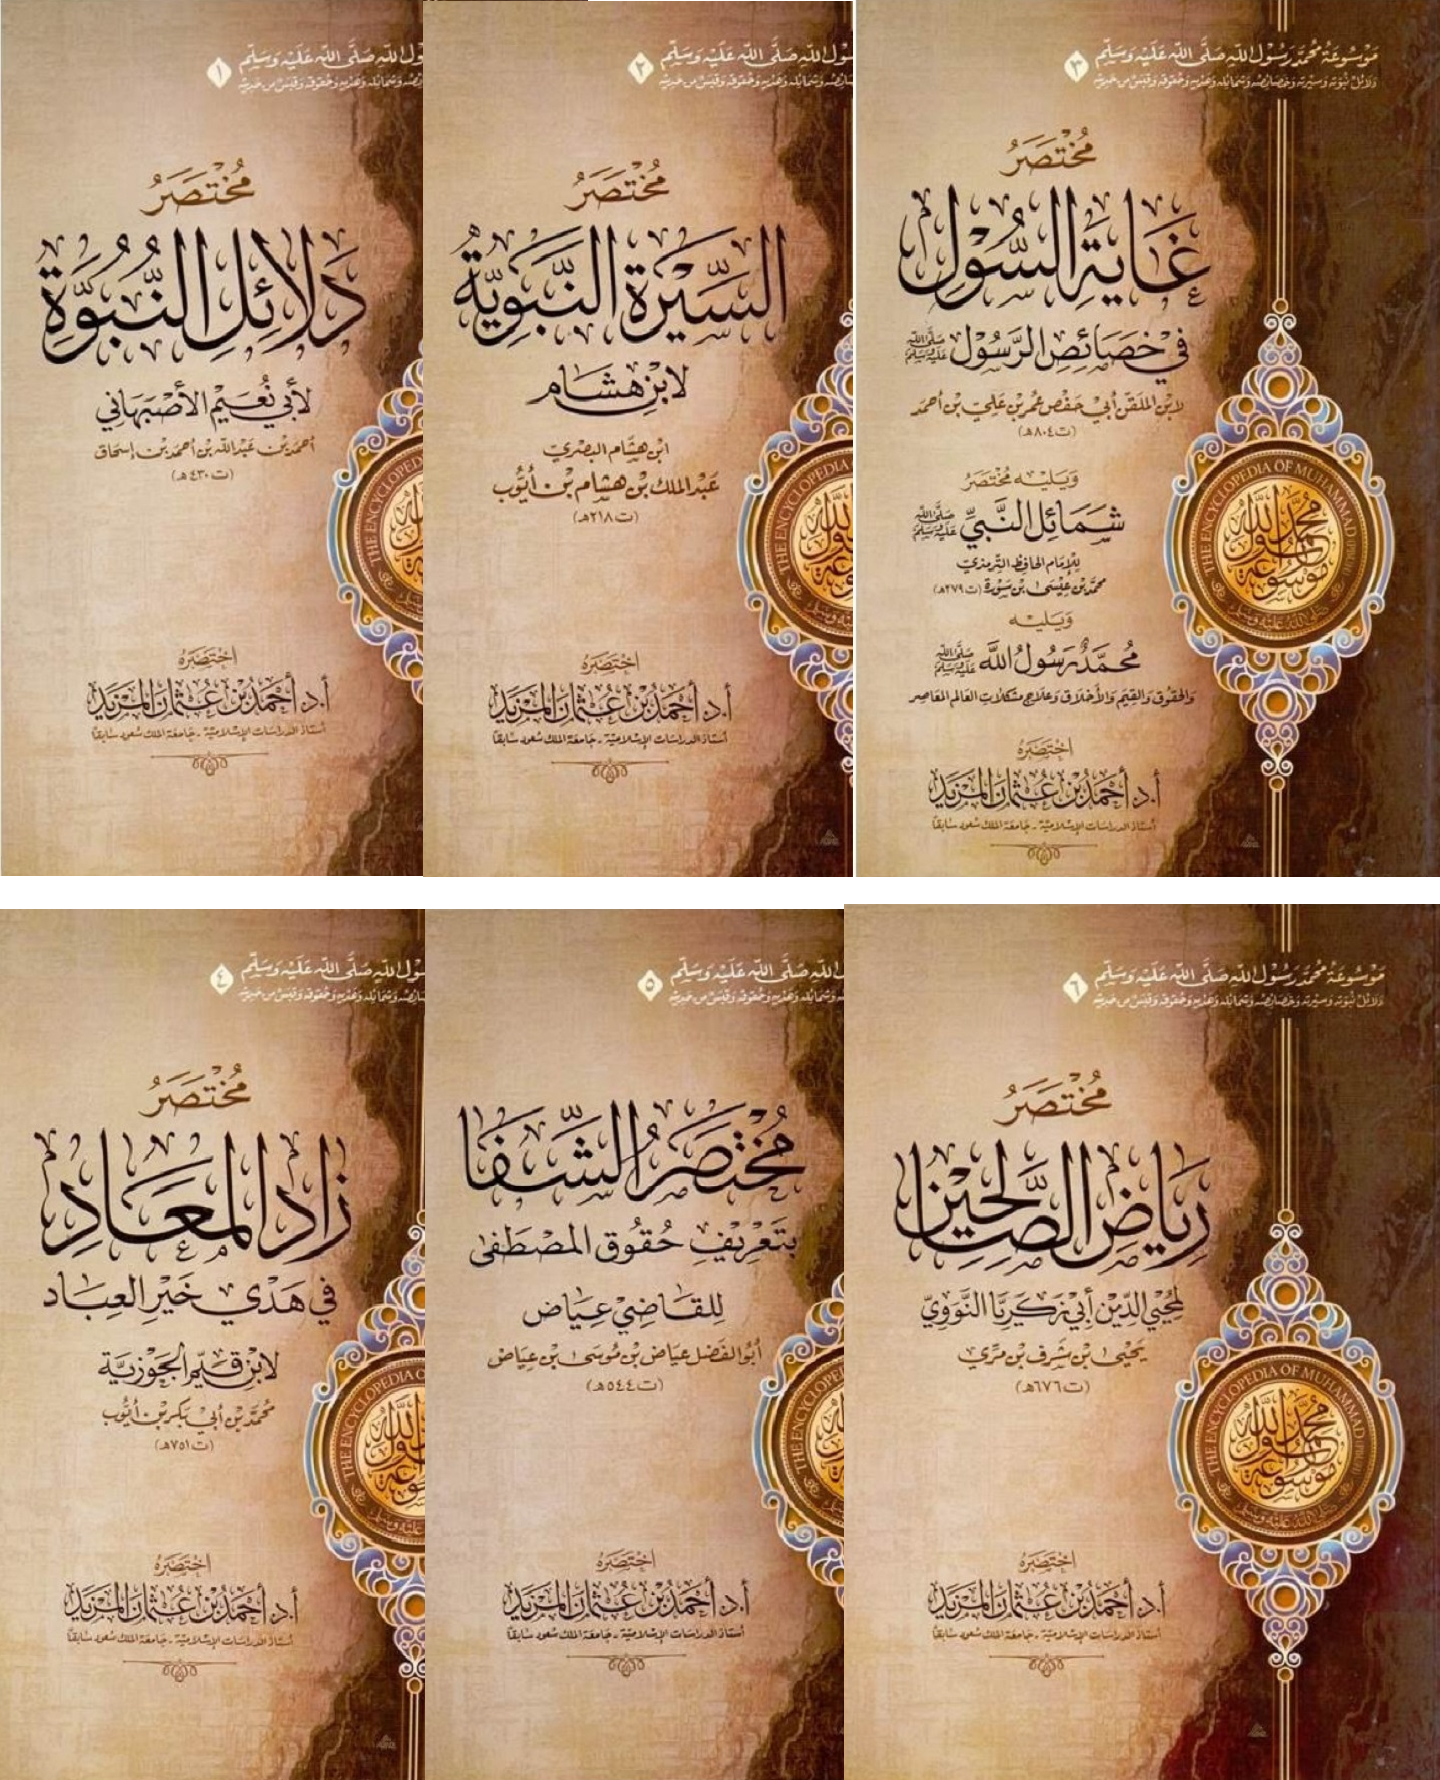 ول الله صلى الله عليه وسلم ١
مختصر
دلائل النبوة
لأبي نعيم الأصبهاني
أحمد بن عبد الله بن أحمد بن إسحاق
(ت ٤٣٠ هـ)
THE ENCYCLOPED
اختصره
أ.د أحمد بن عثمان المزيد
أستاذ الدراسات الإسلامية - جامعة الملك سعود سابقا
ول الله صلى الله عليه وسلم ٢
مختصر
السيرة النبوية
لابن هشام
ابن هشام البصري
عبد الملك بن هشام بن أيوب
(ت ٢١٨ هـ)
THE ENCYCLOPEDIA
اختصره
أ.د أحمد بن عثمان المزيد
أستاذ الدراسات الإسلامية - جامعة الملك سعود سابقا
موسوعة محمد رسول الله صلى الله عليه وسلم ٣
دلائل نبوته وسيرته وخصائصه وشمائله وهديه وحقوقه وقبس من حديثه
مختصر
غاية السول
في خصائص الرسول صلى الله عليه وسلم
لابن الملقن أبي حفص عمر بن علي بن أحمد
(ت ٨٠٤ هـ)
ويليه مختصر
شمائل النبي صلى الله عليه وسلم
للإمام الحافظ الترمذي
محمد بن عيسى بن سورة (ت ٢٧٩ هـ)
ويليه
محمد رسول الله صلى الله عليه وسلم
والحقوق والقيم والأخلاق وعلاج مشكلات العالم المعاصر
THE ENCYCLOPEDIA OF MUHAMMAD
موسوعة محمد رسول الله
صلى الله عليه وسلم
اختصره
أ.د أحمد بن عثمان المزيد
أستاذ الدراسات الإسلامية - جامعة الملك سعود سابقا
ول الله صلى الله عليه وسلم ٤
مختصر
زاد المعاد
في هدي خير العباد
لابن قيم الجوزية
محمد بن أبي بكر بن أيوب
(ت ٧٥١ هـ)
THE ENCYCLOPEDIA
اختصره
أ.د أحمد بن عثمان المزيد
أستاذ الدراسات الإسلامية - جامعة الملك سعود سابقا
الله صلى الله عليه وسلم ٥
مختصر الشفا
بتعريف حقوق المصطفى
للقاضي عياض
أبو الفضل عياض بن موسى بن عياض
(ت ٥٤٤ هـ)
THE ENCYCLOPE
اختصره
أ.د أحمد بن عثمان المزيد
أستاذ الدراسات الإسلامية - جامعة الملك سعود سابقا
موسوعة محمد رسول الله صلى الله عليه وسلم ٦
دلائل نبوته وسيرته وخصائصه وشمائله وهديه وحقوقه وقبس من حديثه
مختصر
رياض الصالحين
لمحيي الدين أبي زكريا النووي
يحيى بن شرف بن مري
(ت ٦٧٦ هـ)
THE ENCYCLOPEDIA OF MUHAMMAD
موسوعة محمد رسول الله
صلى الله عليه وسلم
اختصره
أ.د أحمد بن عثمان المزيد
أستاذ الدراسات الإسلامية - جامعة الملك سعود سابقا